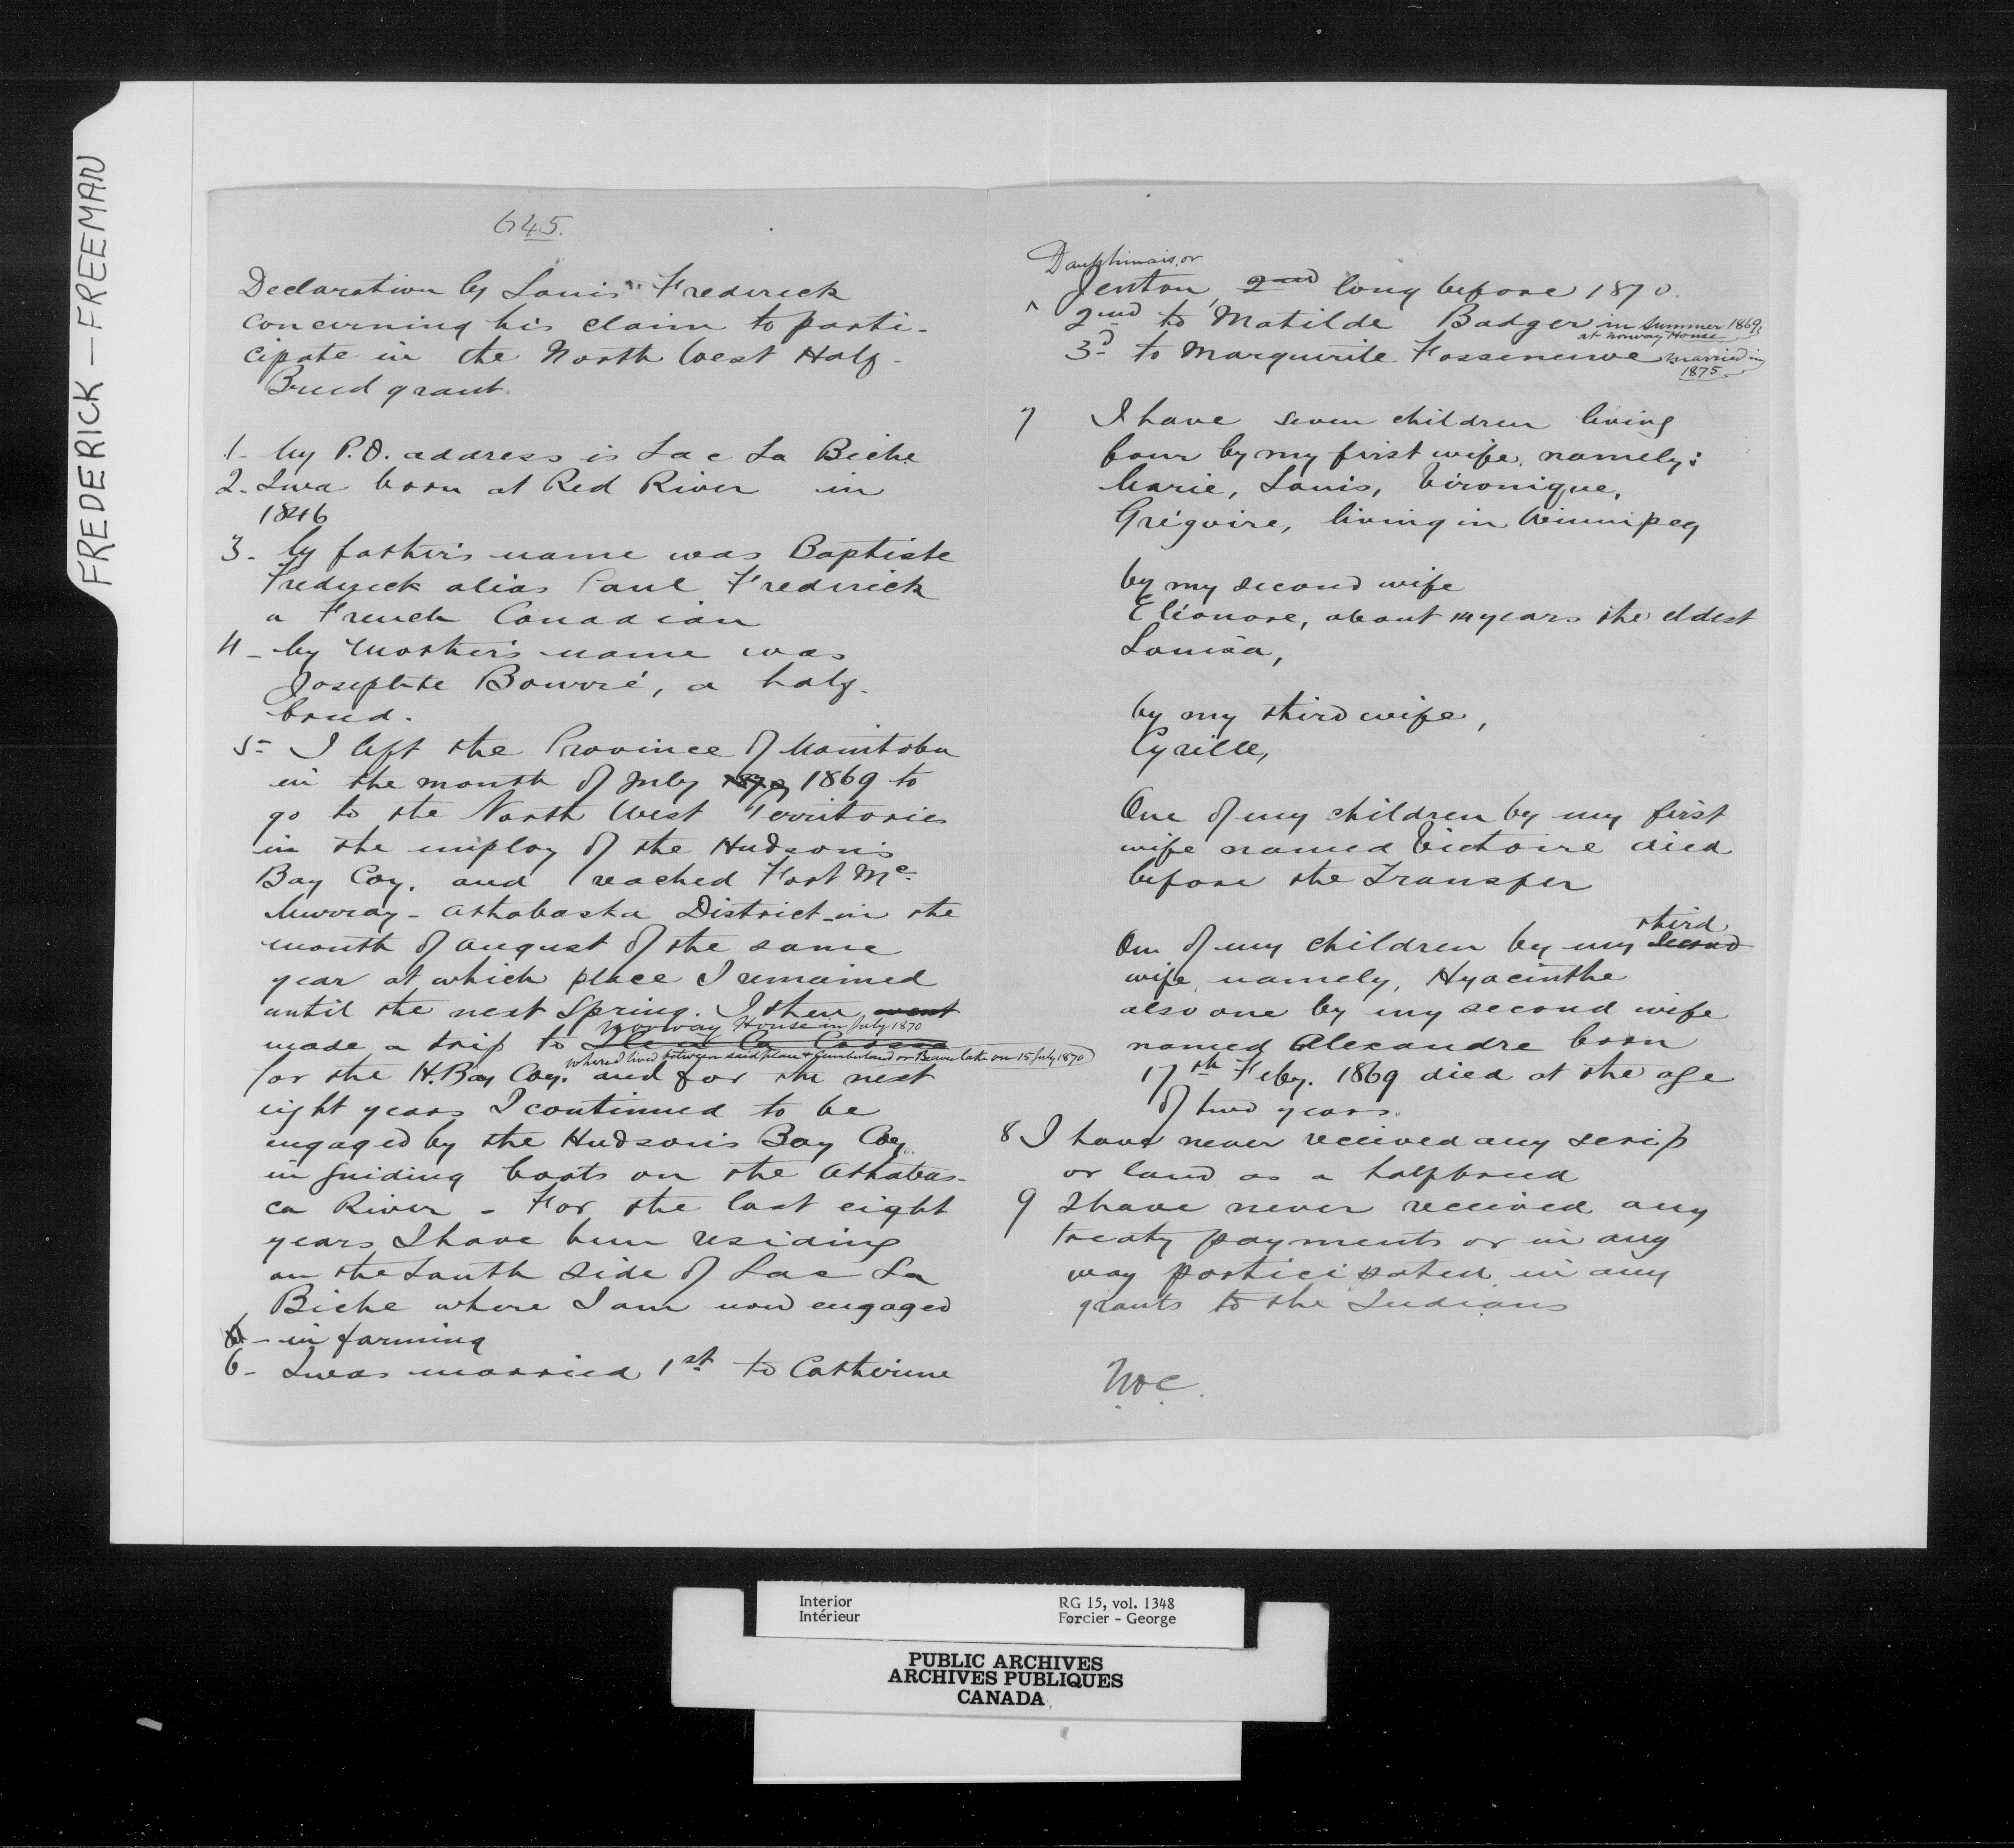 FREDERICK — FREEMAN
645.
Declaration by Louis Frederick
concerning his claim to parti-
cipate in the North West Half-
Breed grant
1- My P.O. address is Lac La Biche
2. I was born at Red River in
1846
3- My father's name was Baptiste
Frederick alias Paul Frederick
a French Canadian
4- My Mother's name was
Josephte Bourré, a half-
breed.
5- I left the Province of Manitoba
in the month of July 1870 1869 to
go to the North West Territories
in the employ of the Hudson's
Bay Coy. and reached Fort Mc
Murray - Athabaska District - in the
month of August of the same
year at which place I remained
until the next Spring. I then went
Norway House in July 1870
made a trip to Ile a La Crosse
where I lived between said place & Cumberland or Beaver lake on 15 July 1870
for the H. Bay Coy. and for the next
eight years I continued to be
engaged by the Hudson's Bay Coy.
in guiding boats on the Athabas-
ca River - For the last eight
years I have been residing
on the South Side of Lac La
Biche where I am now engaged
- in farming
6- I was married 1st to Catherine
Dauphinais, or
Jenton, 2nd long before 1870.
2nd to Matilde Badger in Summer 1869,
at Norway House
3d to Marguerite Fosseneuve married in
1875
7 I have seven children living
four by my first wife, namely:
Marie, Louis, Véronique,
Grégoire, living in Winnipeg
by my second wife
Eléonore, about 14 years the eldest
Louisa,
by my third wife,
Cyrille,
One of my children by my first
wife named Victoire died
before the Transfer
third
One of my children by my second
wife, namely, Hyacinthe
also one by my second wife
named Alexandre born
17th Feby. 1869 died at the age
of two years.
8 I have never received any scrip
or land as a halfbreed
9 I have never received any
treaty payments or in any
way participated in any
grants to the Indians
Interior
Intérieur
RG 15, vol. 1348
Forcier - George
PUBLIC ARCHIVES
ARCHIVES PUBLIQUES
CANADA